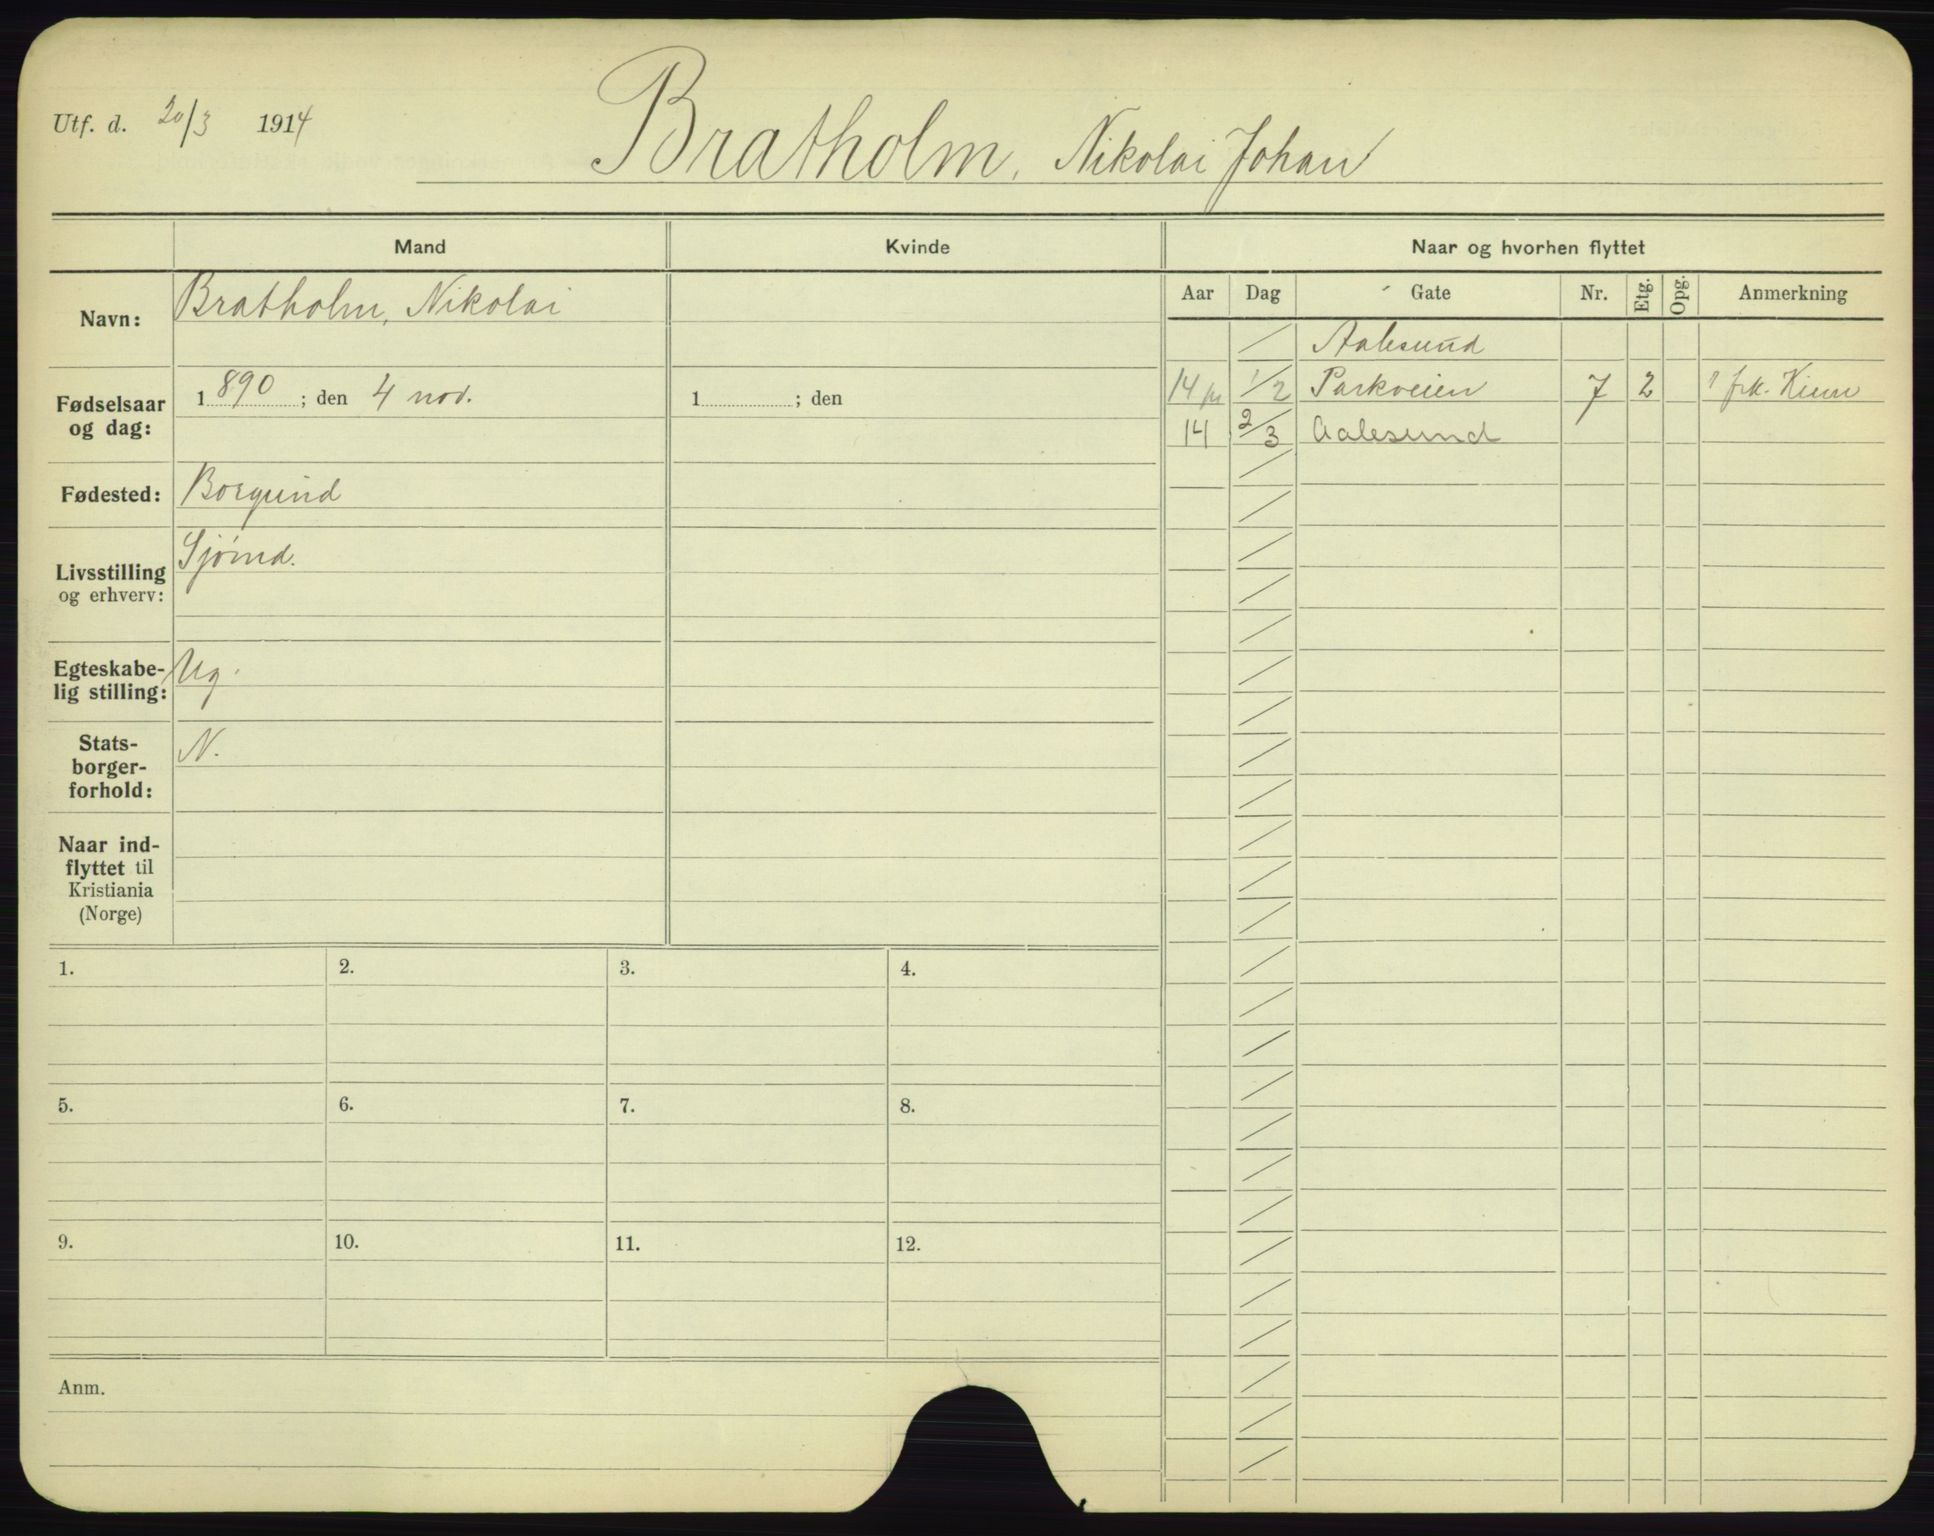 Utf. d. 20/3 1914
Bratholm, Nikolai Johan
Mand
Kvinde
Naar og hvorhen flyttet
Navn:
Bratholm, Nikolai
Fødselsaar
og dag:
1890; den 4 nov.
1 ; den
Fødested:
Borgund
Livsstilling
og erhverv:
Sjømd.
Egteskabe-
lig stilling:
Ug.
Stats-
borger-
forhold:
N.
Naar ind-
flyttet til
Kristiania
(Norge)
Aar Dag Gate Nr. Etg. Opg. Anmerkning
Aalesund
14 1/2 Parkveien 7 2 frk.
14 2/3 Aalesund
1. 2. 3. 4.
5. 6. 7. 8.
9. 10. 11. 12.
Anm.